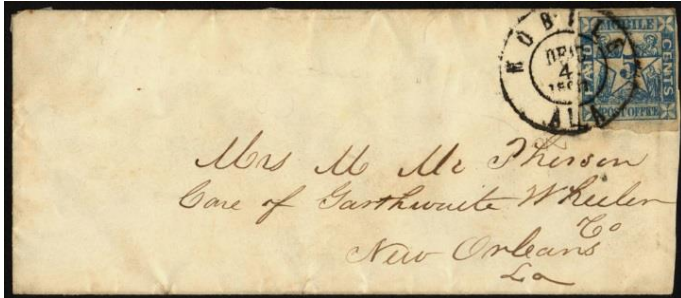 MOBILE ALA
DEC
4
MOBILE
PAID
5
CENTS
POST OFFICE
Mrs M Mc Pherson
Care of Garthwaite Wheeler
& Co
New Orleans
La